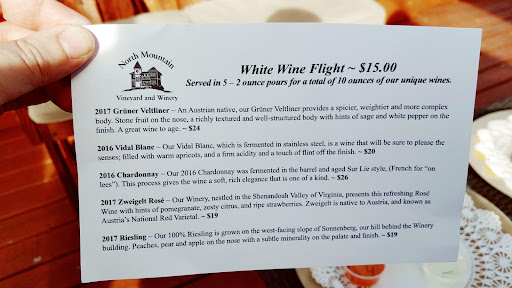 North Mountain
Vineyard and Winery
White Wine Flight ~ $15.00
Served in 5 – 2 ounce pours for a total of 10 ounces of our unique wines.
2017 Grüner Veltliner – An Austrian native, our Grüner Veltliner provides a spicier, weightier and more complex
body. Stone fruit on the nose, a richly textured and well-structured body with hints of sage and white pepper on the
finish. A great wine to age. ~ $24
2016 Vidal Blanc – Our Vidal Blanc, which is fermented in stainless steel, is a wine that will be sure to please the
senses; filled with warm apricots, and a firm acidity and a touch of flint off the finish. ~ $20
2016 Chardonnay – Our 2016 Chardonnay was fermented in the barrel and aged Sur Lie style, (French for “on
lees”). This process gives the wine a soft, rich elegance that is one of a kind. ~ $26
2017 Zweigelt Rosé – Our Winery, nestled in the Shenandoah Valley of Virginia, presents this refreshing Rosé
Wine with hints of pomegranate, zesty citrus, and ripe strawberries. Zweigelt is native to Austria, and known as
Austria's National Red Varietal. ~ $19
2017 Riesling – Our 100% Riesling is grown on the west-facing slope of Sonnenberg, our hill behind the Winery
building. Peaches, pear and apple on the nose with a subtle minerality on the palate and finish. ~ $19